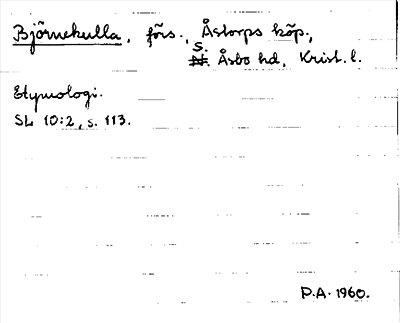 Björnekulla, förs., Åstorps köp.,
S. Åsbo hd, Krist. l.
Etymologi.
SL 10:2, s. 113.
P.A. 1960.